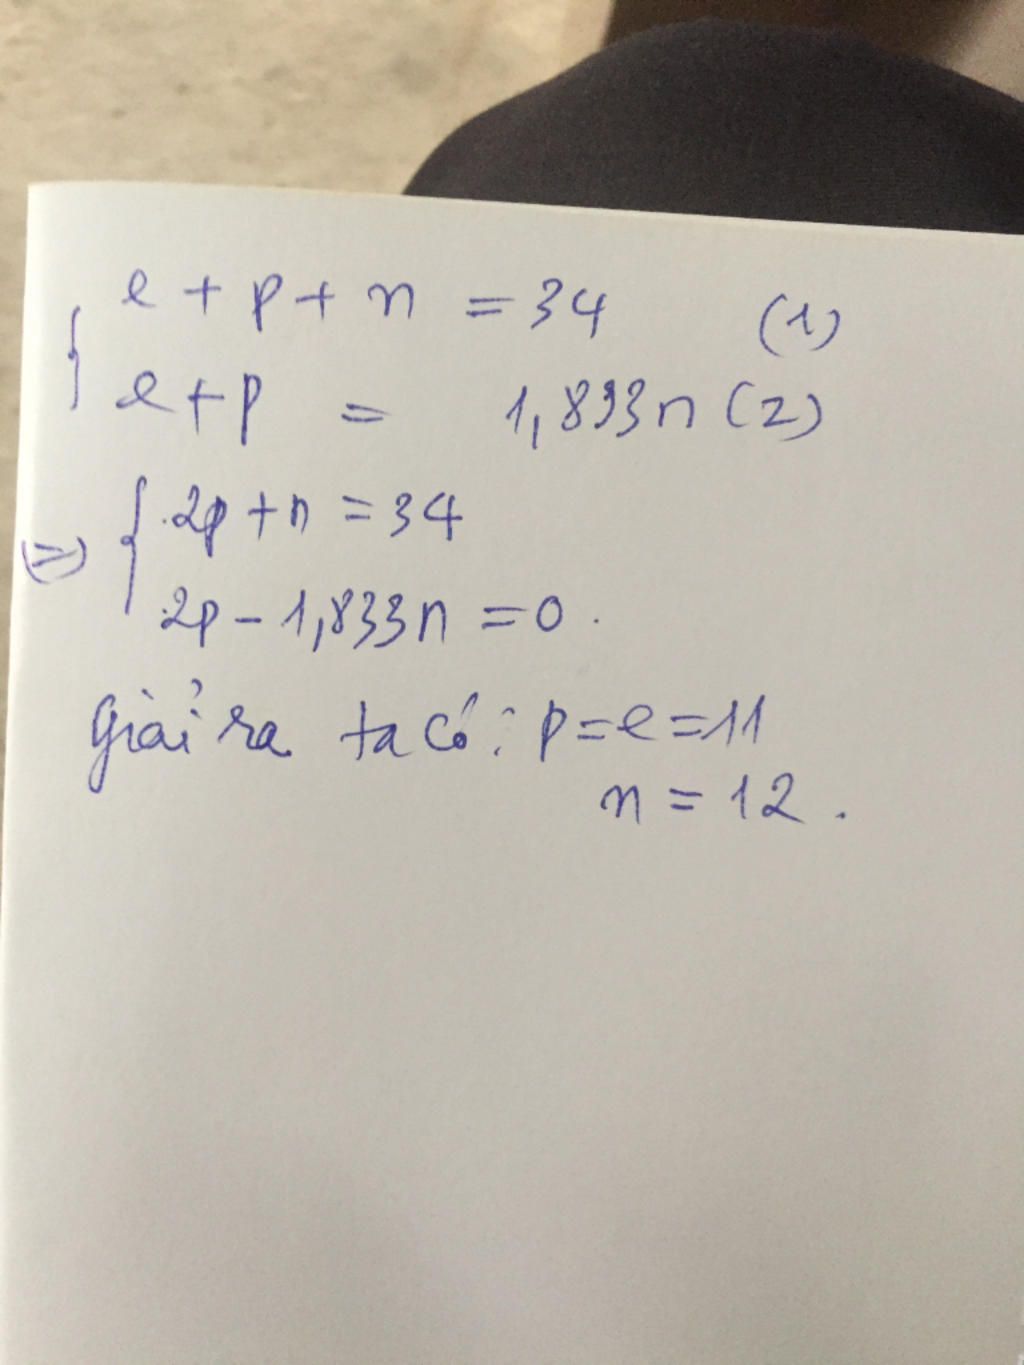 { e + p + n = 34 (1)
e + p = 1,833n (2)
(=) { 2p + n = 34
2p - 1,833n = 0.
Giải ra ta có: p = e = 11
n = 12.